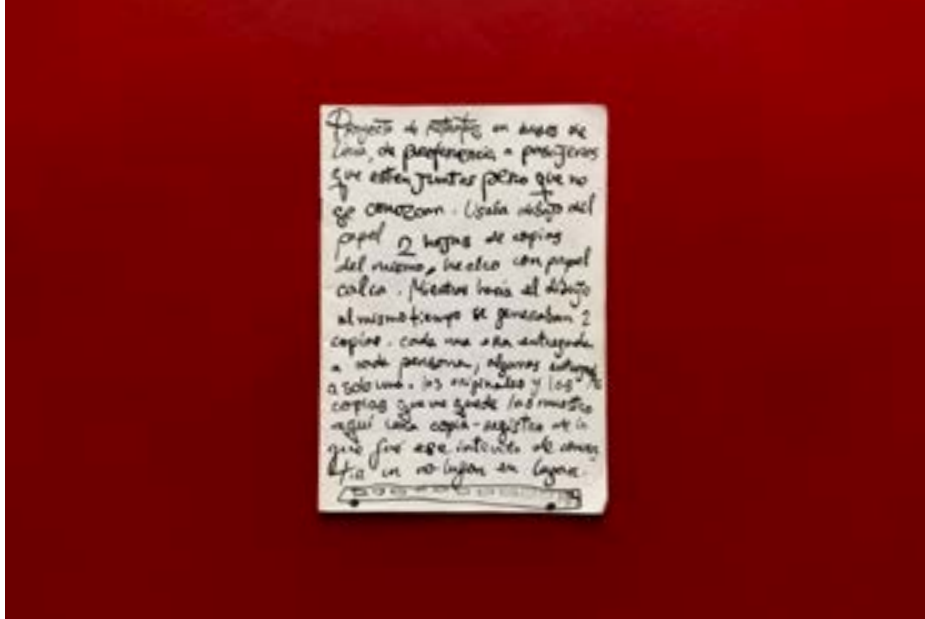 Proyecto de retratos en buses de
Lima, de preferencia a pasajeros
que esten juntos pero que no
se conozcan. Usaba debajo del
papel 2 hojas de copias
del mismo, hecho con papel
calca. Mientras hacia el dibujo
al mismo tiempo se generaban 2
copias. cada una era entregada
a cada persona, algunas entregué
a solo una. los originales y las
copias que me quede las muestro
aquí como copia-registro de lo
que fue ese intento de
un no lugar en lugar.